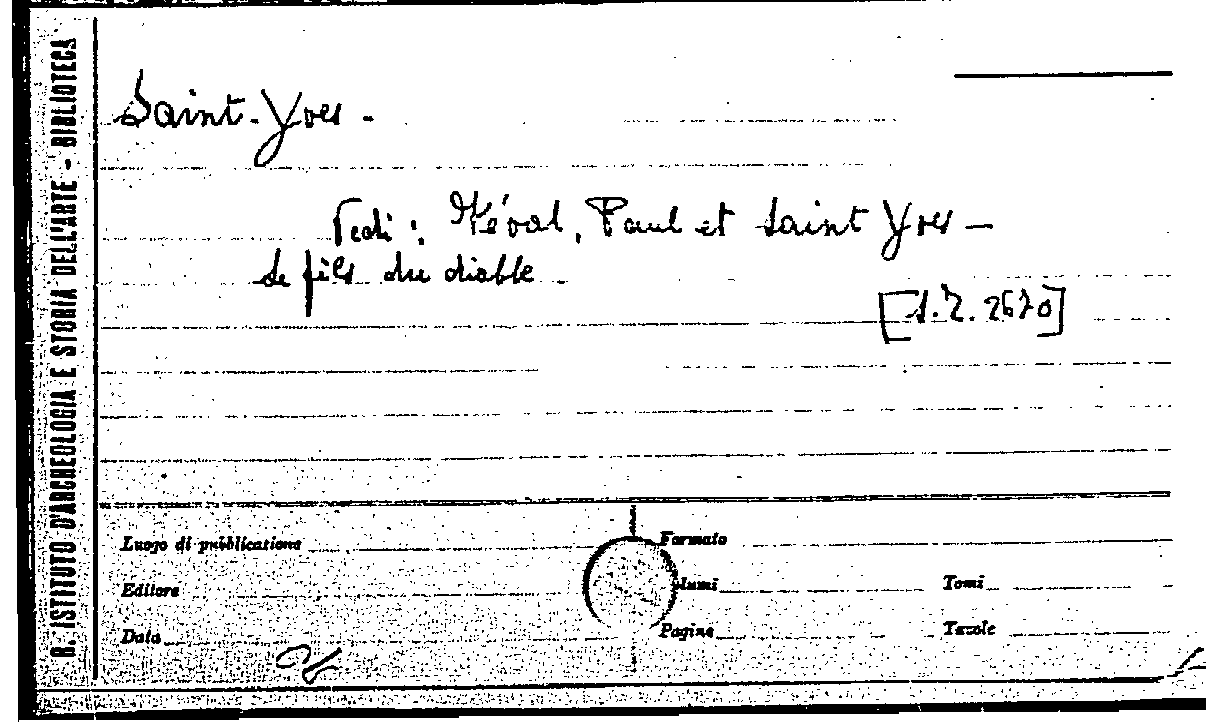 R. ISTITUTO D'ARCHEOLOGIA E STORIA DELL'ARTE - BIBLIOTECA
Saint-Yves -
Vedi: Féval, Paul et Saint Yves -
Le fils du diable
[S.Z. 2670]
Luogo di pubblicazione
Formato
Editore
lumi
Tomi
Data
Pagine
Tavole